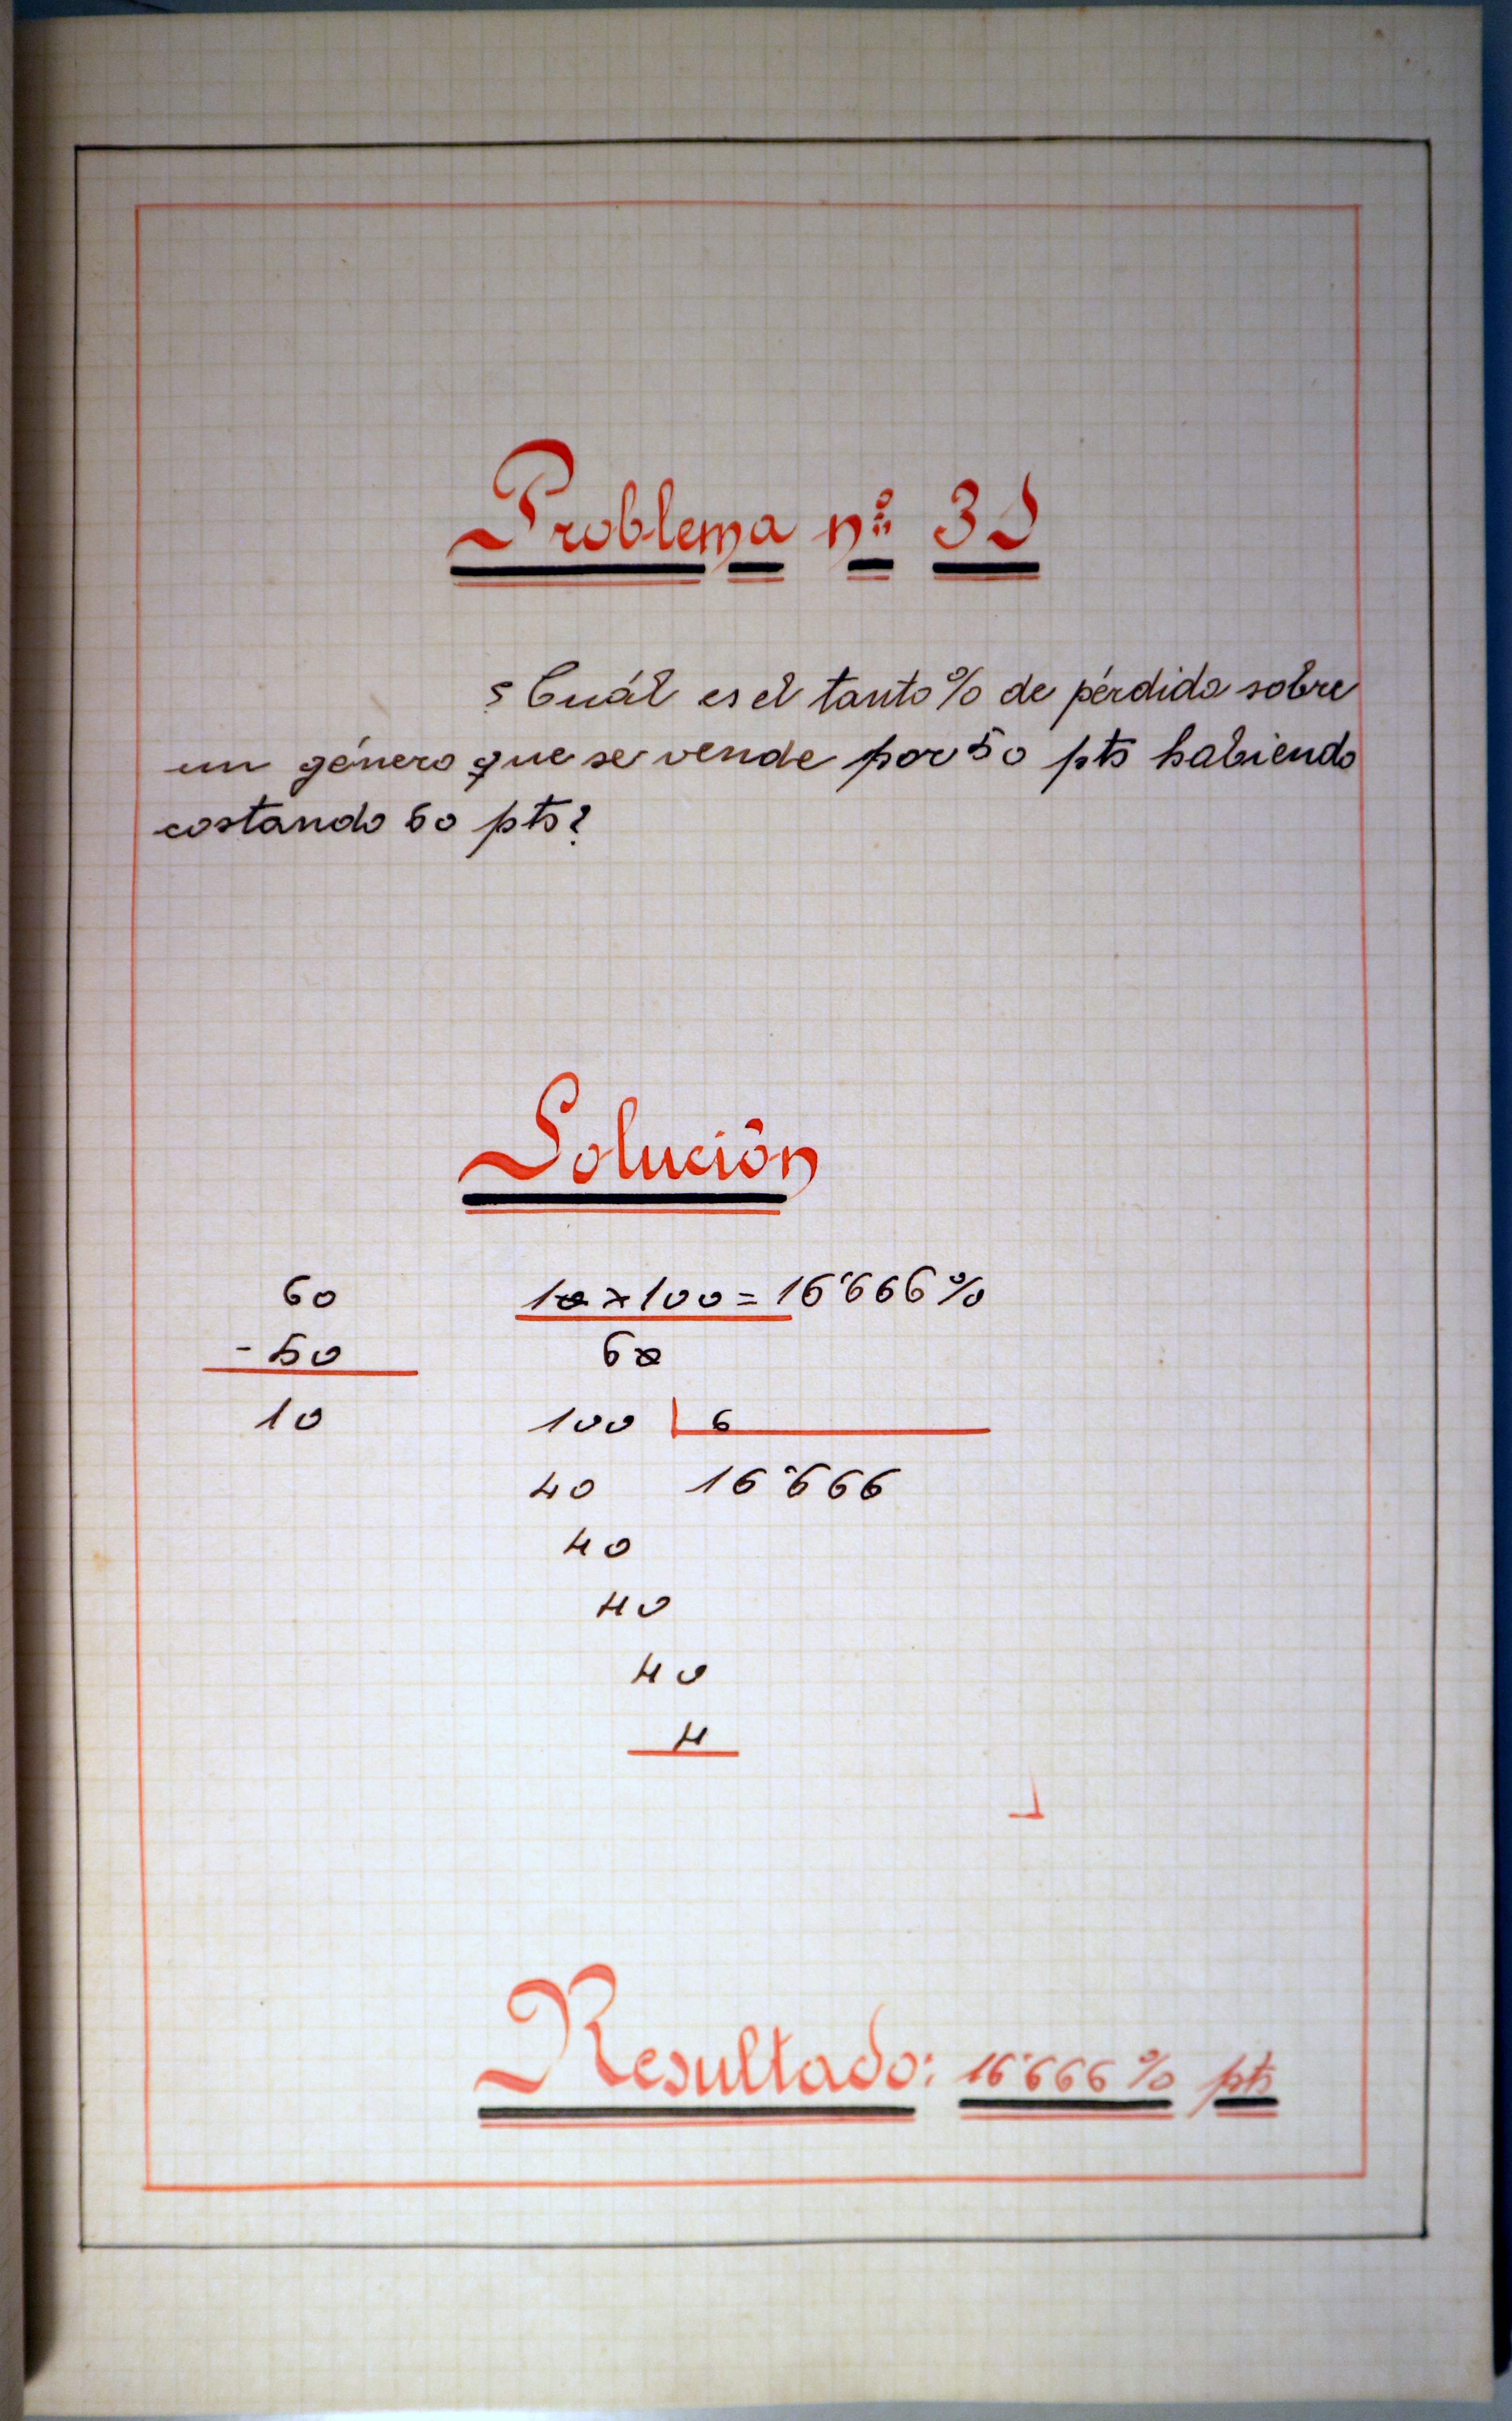 Problema nº 31
¿Cuál es el tanto % de pérdida sobre
un género que se vende por 50 pts habiendo
costando 60 pts?
Solución
60 10 x 100 = 16'666 %
- 50 60
10 100 6
40 16'666
40
40
40
4
Resultado: 16'666 % pts